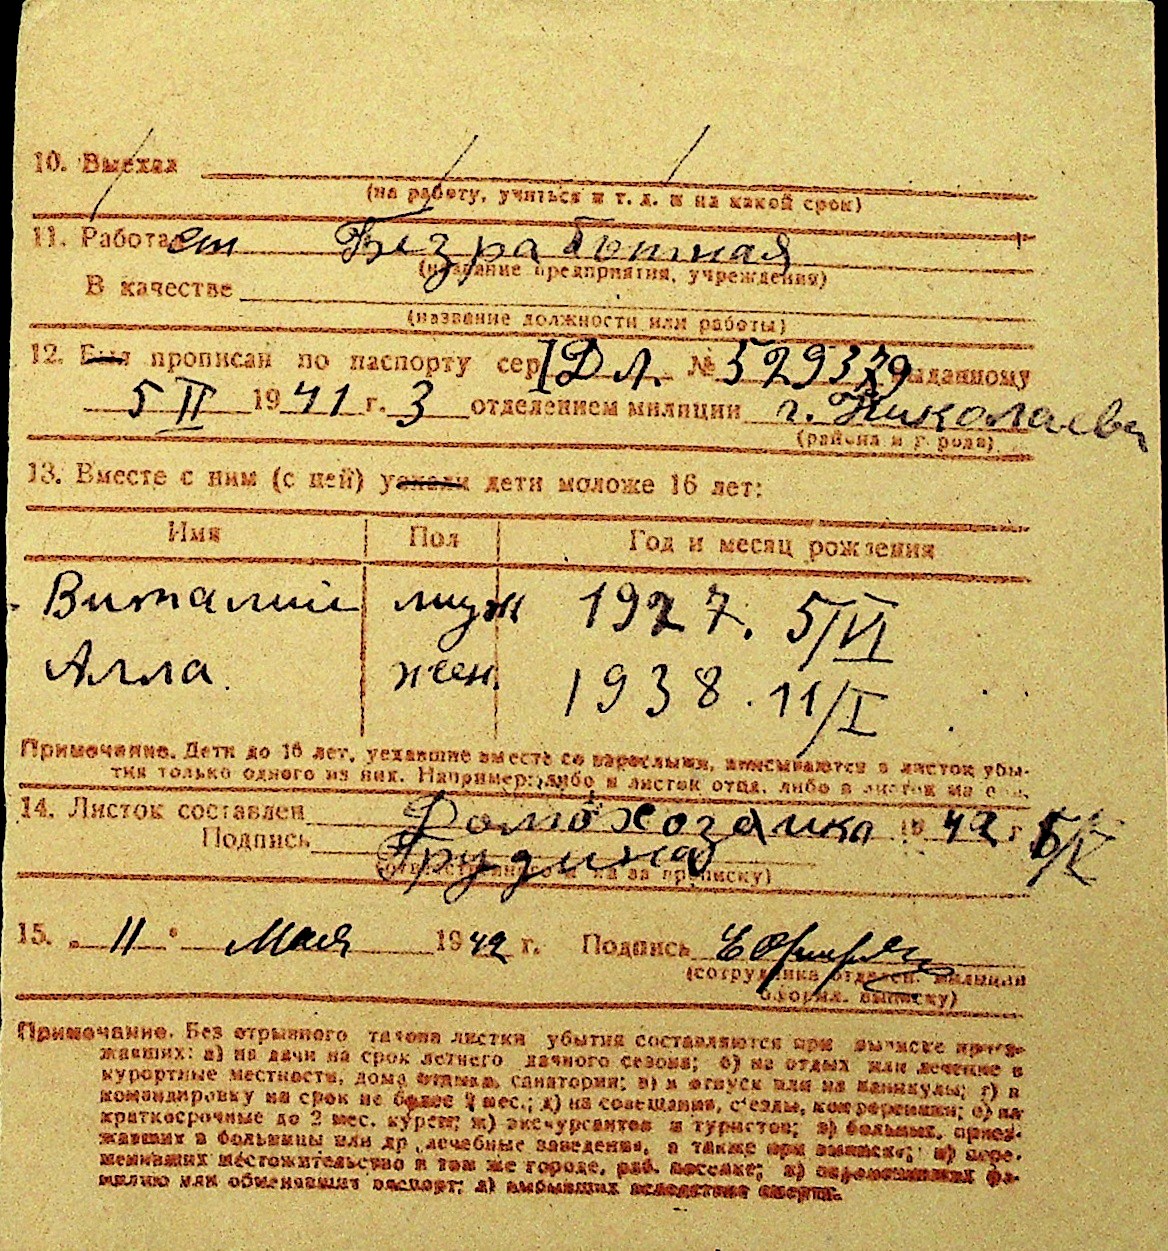 10. Выехал
(на работу, учиться и т. д. и на какой срок)
11. Работает Безработная
(название предприятия, учреждения)
В качестве
(название должности или работы)
12. Был прописан по паспорту сер IДЛ. № 529379 выданному
5 II 1941 г. 3 отделением милиции г. Николаева
(района и города)
13. Вместе с ним (с ней) уехали дети моложе 16 лет:
Имя Пол Год и месяц рождения
Виталий муж 1927. 5/VI
Алла. жен. 1938. 11/I
Примечание. Дети до 16 лет, уехавшие вместе со взрослыми, вписываются в листок убы-
тия только одного из них. Например: либо в листок отца, либо в листок матери.
14. Листок составлен Домохозяйка 1942 г 5/V
Подпись Грудина
(ответственного за прописку)
15. „11" Мая 1942 г. Подпись
(сотрудника отделен. милиции
оформл. выписку)
Примечание. Без отрывного талона листки убытия составляются при выписке приез-
жавших: а) на дачи на срок летнего дачного сезона; б) на отдых или лечение в
курортные местности, дома отдыха, санатории; в) в отпуск или на каникулы; г) в
командировку на срок не более 2 мес.; д) на совещания, съезды, конференции; е) на
краткосрочные до 2 мес. курсы; ж) экскурсантов и туристов; з) больных, приез-
жавших в больницы или др. лечебные заведения, а также при выписке: и) пере-
менивших местожительство в том же городе, раб. поселке; к) переменивших фа-
милию или обменявших паспорт; л) выбывших вследствие смерти.